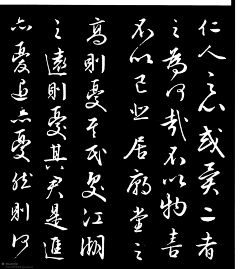 仁人之心或異二者
之為何哉不以物喜
不以己悲居廟堂之
高則憂其民處江湖
之遠則憂其君是進
亦憂退亦憂然則何